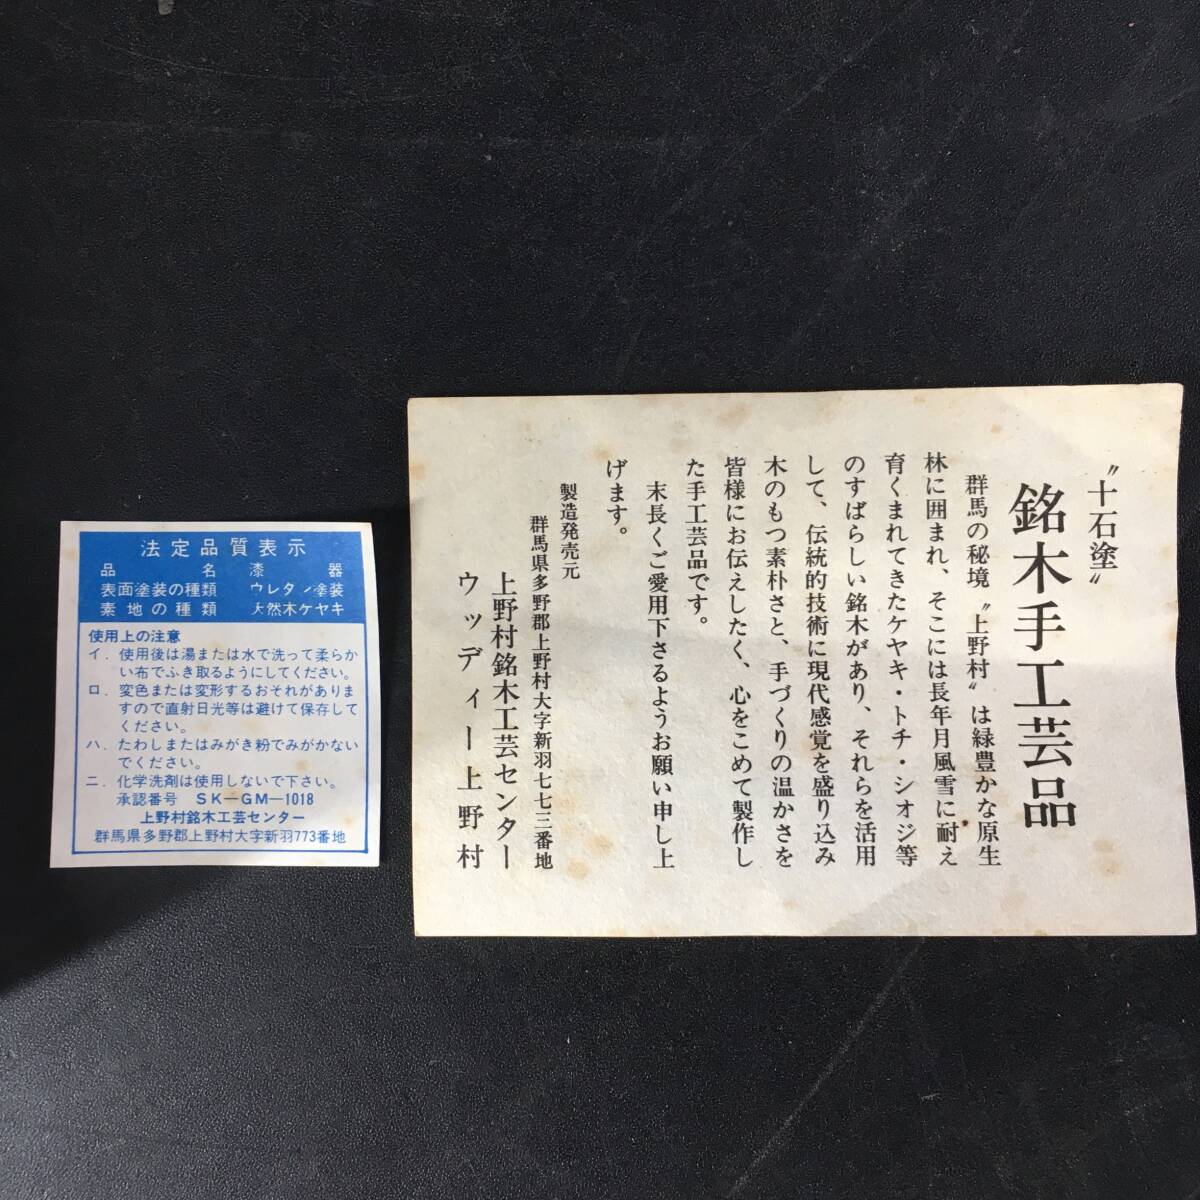 法定品質表示
品名 漆器
表面塗装の種類 ウレタン塗装
素地の種類 天然木ケヤキ
使用上の注意
イ．使用後は湯または水で洗って柔らか
い布でふき取るようにしてください。
ロ．変色または変形するおそれがありま
すので直射日光等は避けて保存して
ください。
ハ．たわしまたはみがき粉でみがかない
でください。
ニ．化学洗剤は使用しないで下さい。
承認番号 SK—GM—1018
上野村銘木工芸センター
群馬県多野郡上野村大字新羽773番地
〝十石塗〟
銘木手工芸品
群馬の秘境〝上野村〟は緑豊かな原生
林に囲まれ、そこには長年月風雪に耐え
育くまれてきたケヤキ・トチ・シオジ等
のすばらしい銘木があり、それらを活用
して、伝統的技術に現代感覚を盛り込み
木のもつ素朴さと、手づくりの温かさを
皆様にお伝えしたく、心をこめて製作し
た手工芸品です。
末長くご愛用下さるようお願い申し上
げます。
製造発売元
群馬県多野郡上野村大字新羽七七三番地
上野村銘木工芸センター
ウッディー上野村